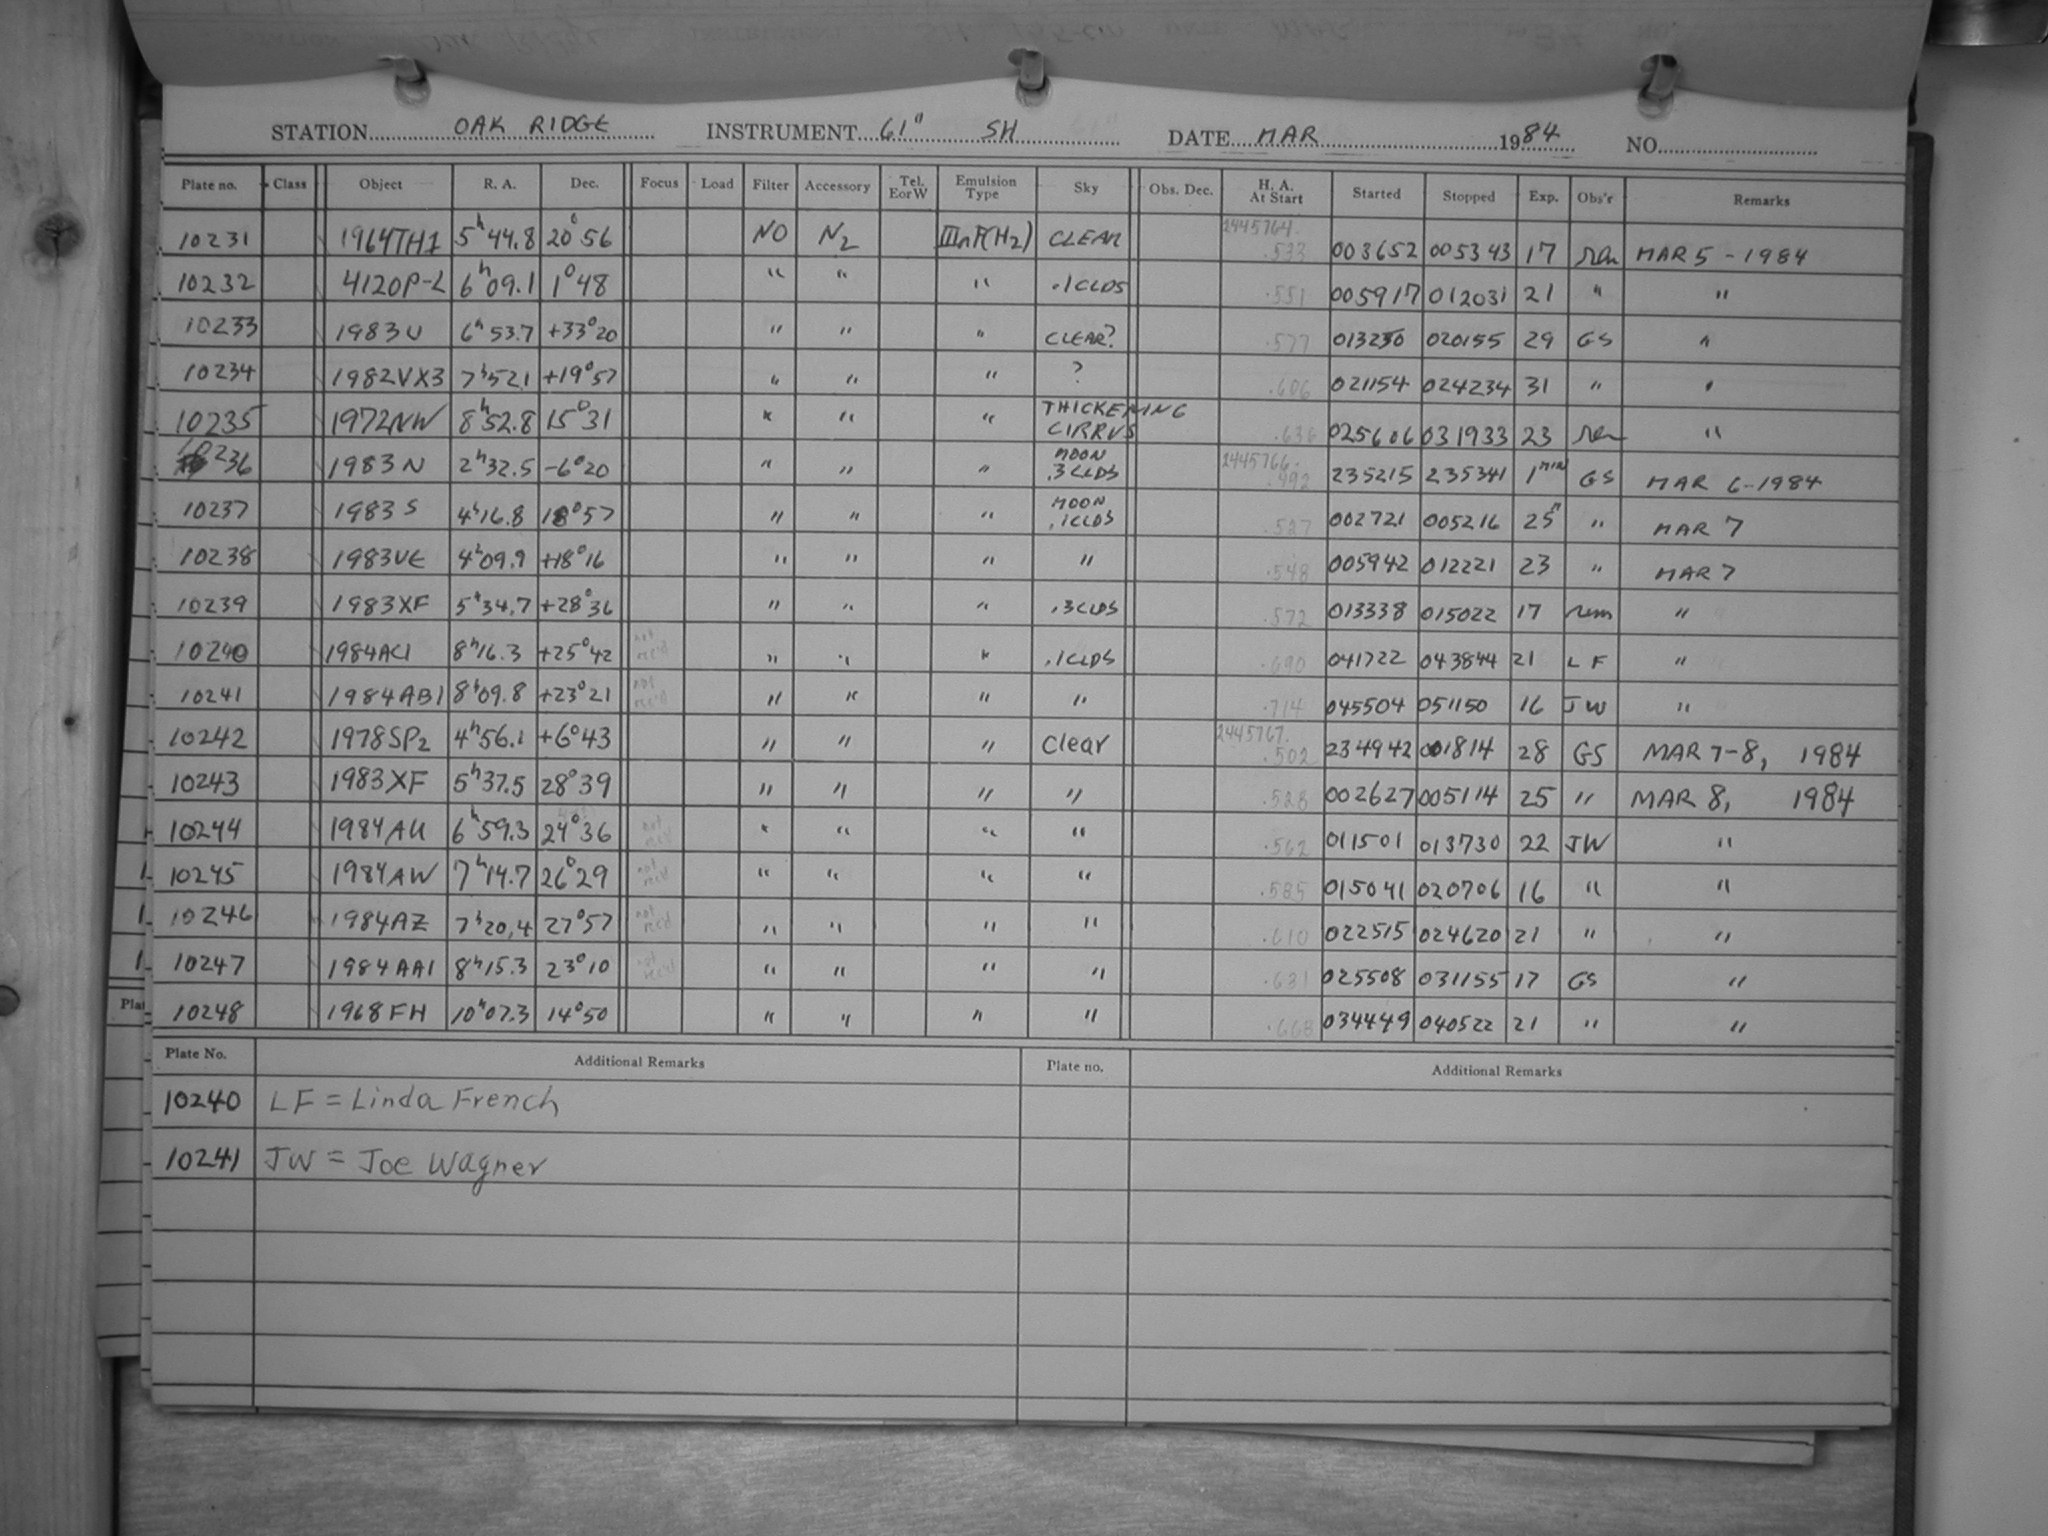 STATION OAK RIDGE INSTRUMENT 61" SH DATE MAR 1984 NO.
Plate no. Class Object R. A. Dec. Focus Load Filter Accessory Tel. E or W Emulsion Type Sky Obs. Dec. H. A. At Start Started Stopped Exp. Obs'r Remarks
10231 1964TH1 5h44.8 20°56 NO N2 IIIaF(H2) CLEAR 2445764. .533 003652 005343 17 MAR 5-1984
10232 4120P-L 6h09.1 1°48 " " " .1CLDS .551 005917 012031 21 " "
10233 1983U 6h53.7 +33°20 " " " CLEAR? .577 013230 020155 29 GS "
10234 1982VX3 7h52.1 +19°57 " " " ? .606 021154 024234 31 " "
10235 1972NW 8h52.8 15°31 " " " THICKENING CIRRUS .636 025606 031933 23 "
10236 1983N 2h32.5 -6°20 " " " MOON .3CLDS 2445766. .492 235215 235341 1min GS MAR 6-1984
10237 1983S 4h16.8 18°57 " " " MOON .1CLDS .527 002721 005216 25 " MAR 7
10238 1983VE 4h09.9 +18°16 " " " " .548 005942 012221 23 " MAR 7
10239 1983XF 5h34.7 +28°36 " " " .3CLDS .572 013338 015022 17 "
10240 1984AC1 8h16.3 +25°42 " " " .1CLDS .690 041722 043844 21 LF "
10241 1984AB1 8h09.8 +23°21 " " " " .714 045504 051150 16 JW "
10242 1978SP2 4h56.1 +6°43 " " " Clear 2445767. .502 234942 001814 28 GS MAR 7-8, 1984
10243 1983XF 5h37.5 28°39 " " " " .528 002627 005114 25 " MAR 8, 1984
10244 1984AU 6h59.3 24°36 " " " " .562 011501 013730 22 JW "
10245 1984AW 7h14.7 26°29 " " " " .585 015041 020706 16 " "
10246 1984AZ 7h20.4 27°57 " " " " .610 022515 024620 21 " "
10247 1984AA1 8h15.3 23°10 " " " " .631 025508 031155 17 GS "
10248 1968FH 10h07.3 14°50 " " " " .668 034449 040522 21 " "
Plate No. Additional Remarks Plate no. Additional Remarks
10240 LF = Linda French
10241 JW = Joe Wagner